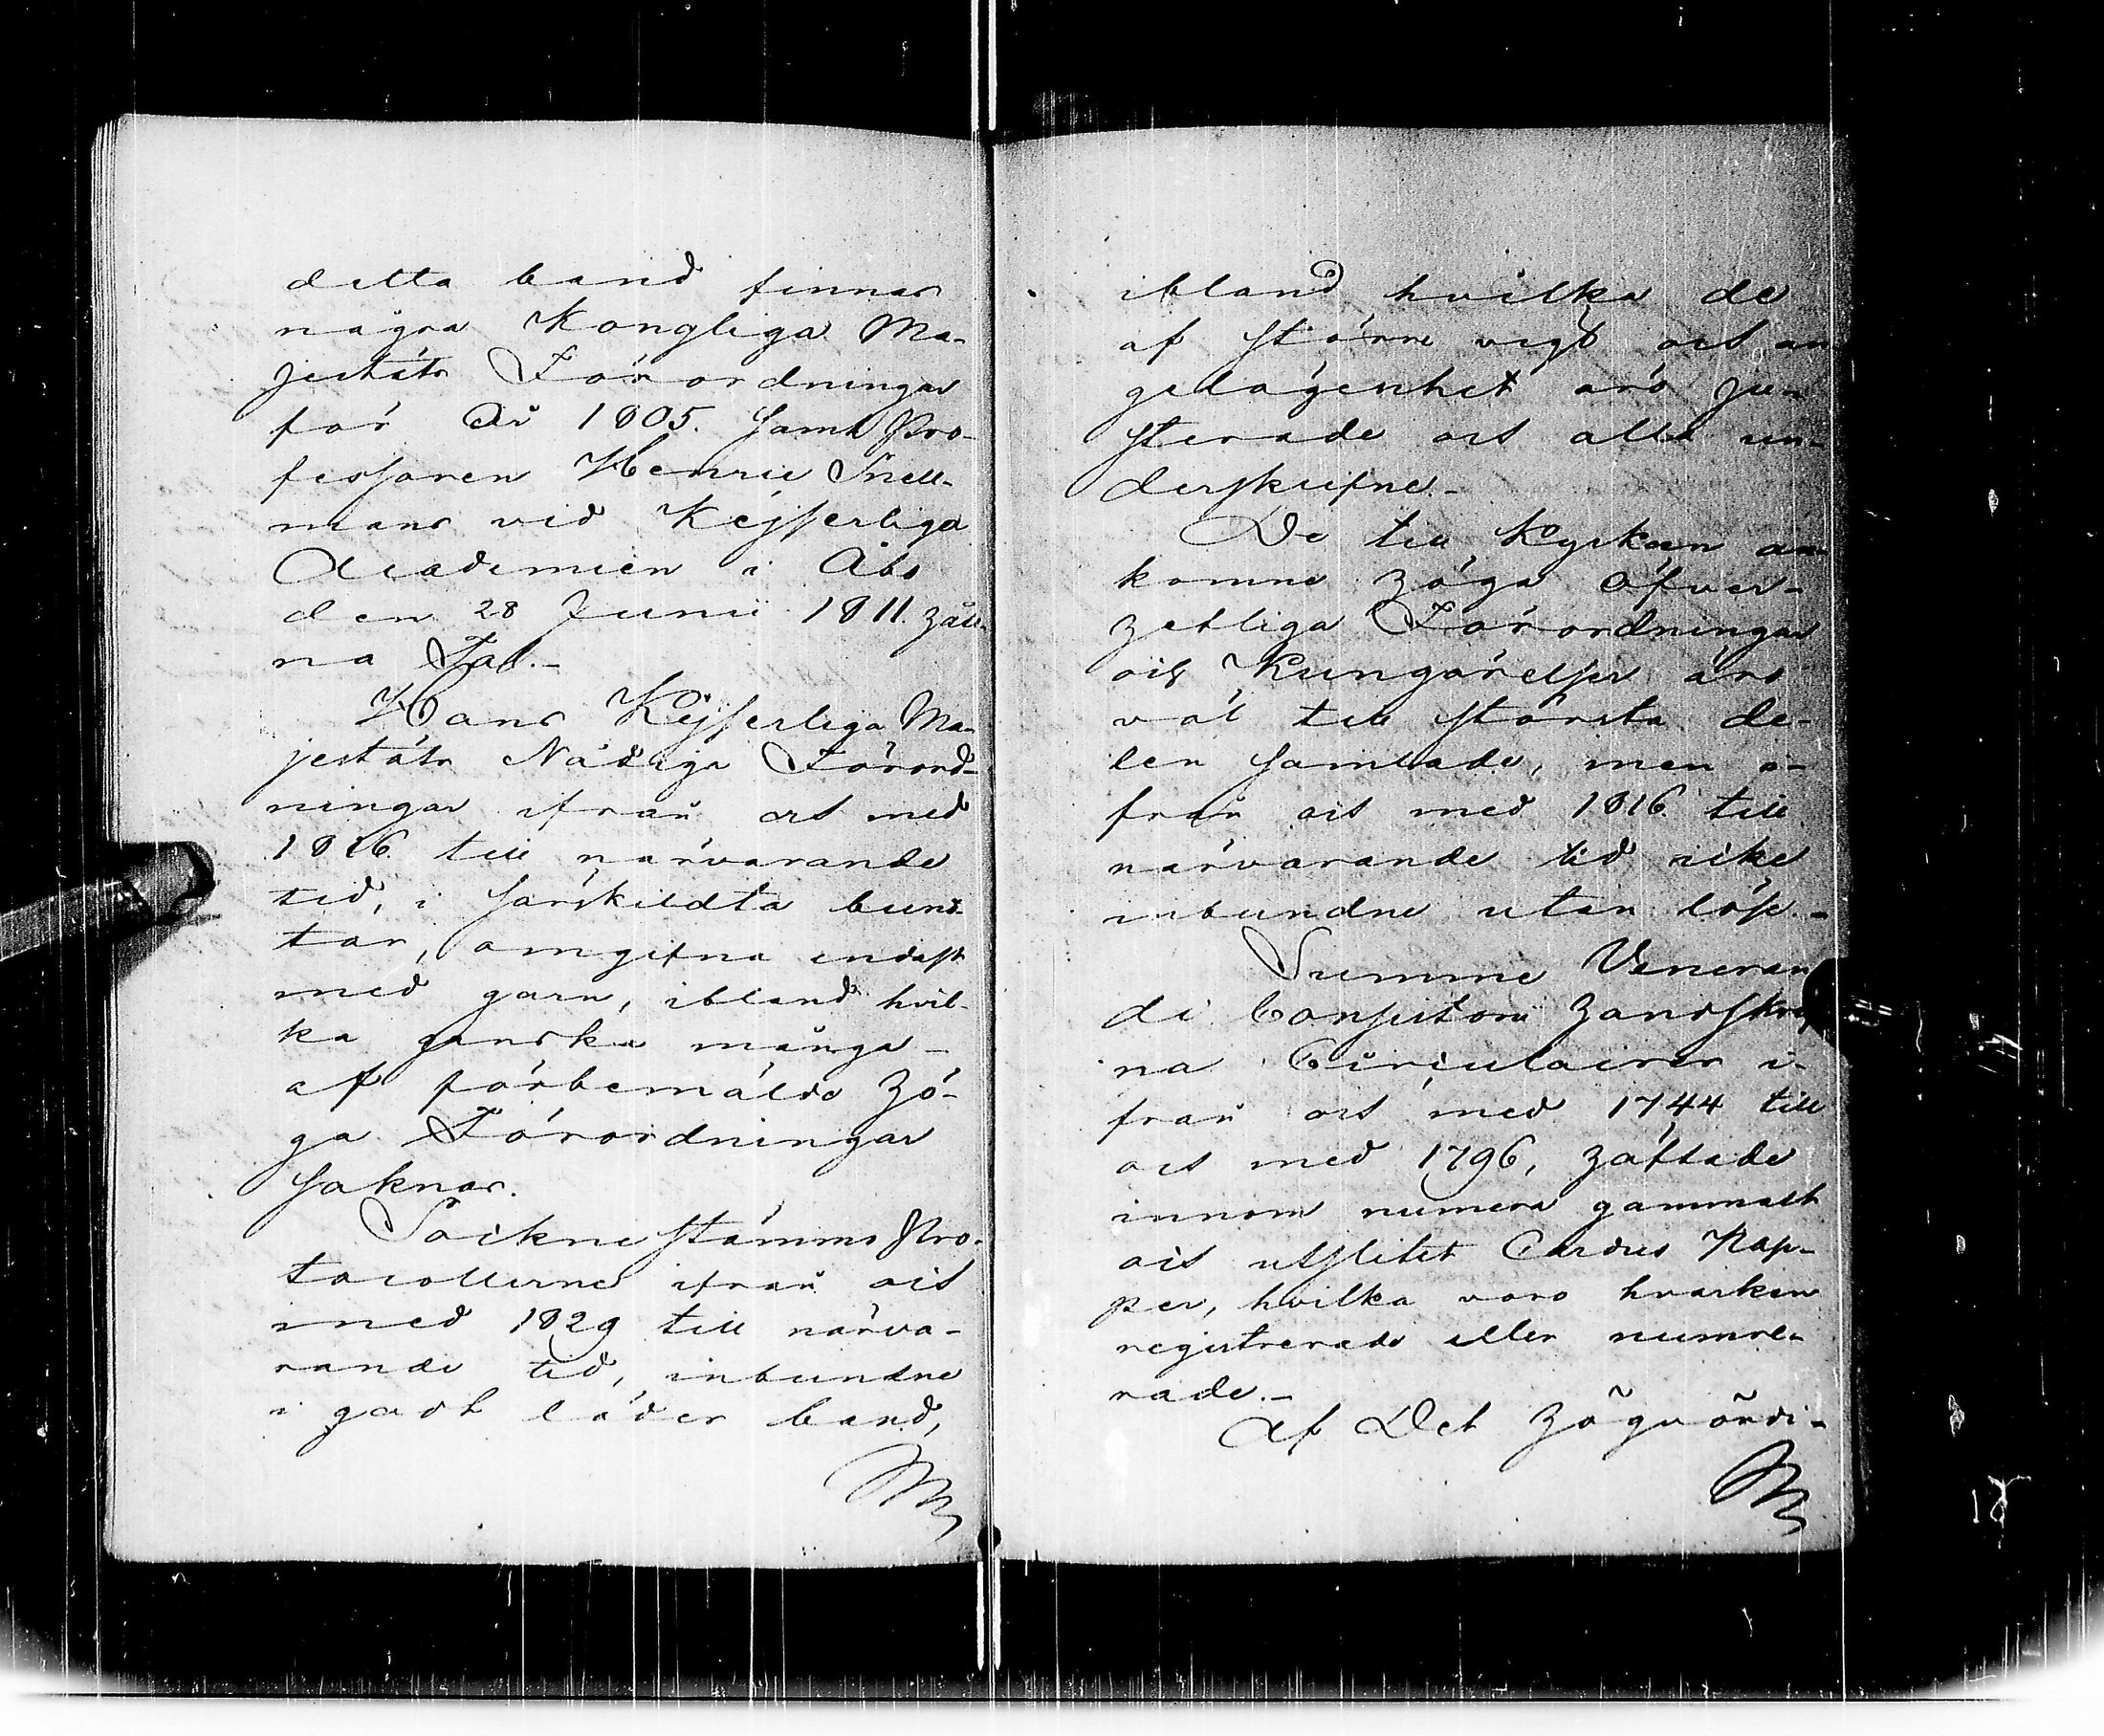 detta band finnas
några Kongliga Ma-
jestäts Förordningar
för År 1805. samt Pro-
fessoren Henric Snell-
mans vid Kejserliga
Academien i Åbo
den 28 Junii 1811. håll-
na Tal.-
Hans Kejserliga Ma-
jestäts Nådiga Förord-
ningar ifrån och med
1816. till närvarande
tid, i särskildta bund-
tar, omgifna endast
med garn, ibland hvil-
ka ganska många -
af förbemälde hö-
ga Förordningar
saknas.
Sockne stämmo Pro-
tocollerne ifrån och
med 1829 till närva-
rande tid, inbundne
i godt läder band,
ibland hvilka de
af större vigt och an
gelägenhet äro ju-
sterade och alla un-
derskrifne.-
De till Kyrkan an-
komne höga öfver-
hetliga Förordningar
och Kungörelser äro
väl till största de-
len samlade, men i-
från och med 1816. till
närvarande tid icke
inbundne utan löse.-
Summe Veneran
di Consistorii handskrif
na Circulairer i-
från och med 1744 till
och med 1796, häftade
innom numera gammalt
och utslitet Cardus Pap-
per, hvilka voro hvarken
registrerade eller numre-
rade.-
Af Det högvördi-
18